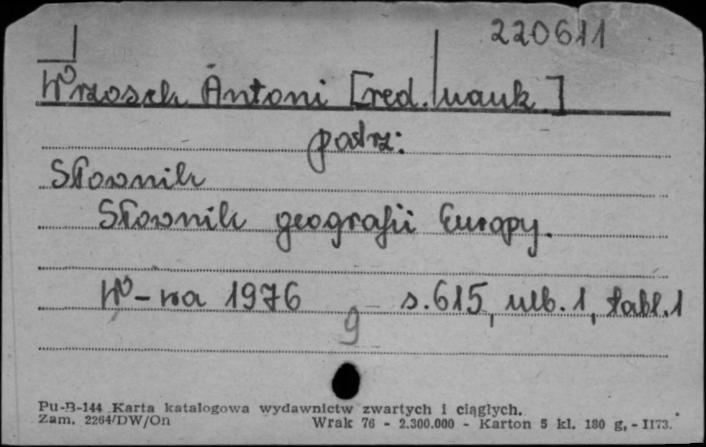 220611
Wrzosek Antoni [red. nauk.]
patrz:
Słownik
Słownik geografii Europy.
W-wa 1976 s. 615, nlb. 1, tabl. 1
9
Pu-B-144 Karta katalogowa wydawnictw zwartych i ciągłych.
Zam. 2264/DW/On Wrak 76 - 2.300.000 - Karton 5 kl. 180 g. - II73.